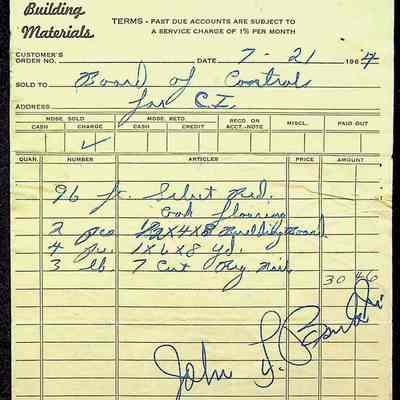 Building
Materials
TERMS - PAST DUE ACCOUNTS ARE SUBJECT TO
A SERVICE CHARGE OF 1% PER MONTH
CUSTOMER'S
ORDER NO. DATE 7-21 1964
SOLD TO Board of Control
ADDRESS for C.I.
MDSE. SOLD MDSE. RETD. REC'D ON MISCL. PAID OUT
CASH CHARGE CASH CREDIT ACCT.-NOTE
QUAN. NUMBER ARTICLES PRICE AMOUNT
96 ft. Select Red.
Oak flooring
2 pcs 1/2x4x8 Building Board
4 pc. 1x6x8 Yd.
3 lb. 7 Cut Flg Nail
30 46
John F.